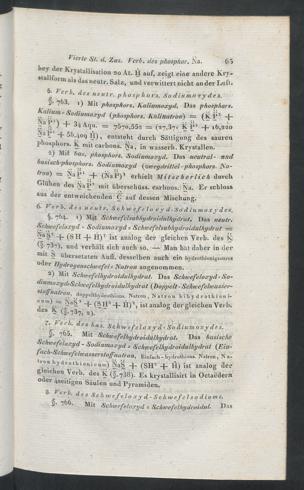 Vierte St. d. Zus. Verb. des phosphor. Na. 65
bey der Krystallisation 20 At. H auf, zeigt eine andere Kry-
stallform als das neutr. Salz, und verwittert nicht an der Luft.
6. Verb. des neutr. phosphors. Sodiumoxydes.
§. 763. 1) Mit phosphors. Kaliumoxyd. Das phosphors.
Kalium-Sodiumoxyd (phosphors. Kalinatron) = (K P +
Na P) + 34 Aqu. = 7570,552 = (27,37. K P + 16,220
Na P + 56,409 H), entsteht durch Sättigung des sauren
phosphors. K mit carbons. Na, in wasserh. Krystallen.
2) Mit bas. phosphors. Sodiumoxyd. Das neutral- und
basisch-phosphors. Sodiumoxyd (
phosphors. Na-
tron) = Na P + (Na P) erhielt Mitscherlich durch
Glühen des Na P mit überschüss. carbons. Na. Er schloss
aus der entweichenden C auf dessen Mischung.
6. Verb. des neutr. Schwefeloxyd-Sodiumoxydes.
§. 764. 1) Mit Schwefelsulfhydroidulhydrat. Das neutr.
= Na S + (SH + H) ist analog der gleichen Verb. des K
(§. 737), und verhält sich auch so. — Man hat daher in der
mit S übersetzten Aufl. desselben auch ein hydrothionigsaures
oder Hydrogenschwefel-Natron angenommen.
2) Mit Schwefelhydroidulhydrat. Das Schwefeloxyd-So-
diumoxyd-Schwefelhydroidulhydrat (Doppelt-Schwefelwasser-
stoffnatron, doppelhydrothions. Natron, Natron bihydrothioni-
cum) = Na S + (SH + H), ist analog der gleichen Verb.
des K (§. 737, 2).
7. Verb. des bas. Schwefeloxyd-Sodiumoxydes.
§. 765. Mit Schwefelhydroidulhydrat. Das basische
Schwefeloxyd-Sodiumoxyd-Schwefelhydroidulhydrat (Ein-
fach-Schwefelwasserstoffnatron, Einfach-hydrothions. Natron, Na-
tron hydrothionicum) = Na S + (SH + H) ist analog der
gleichen Verb. des K (§. 738). Es krystallisirt in Octaëdern
oder 4seitigen Säulen und Pyramiden.
8. Verb. des Schwefeloxyd-Schwefelsodiums.
§. 766. Mit Schwefeloxyd-Schwefelhydroidul. Das